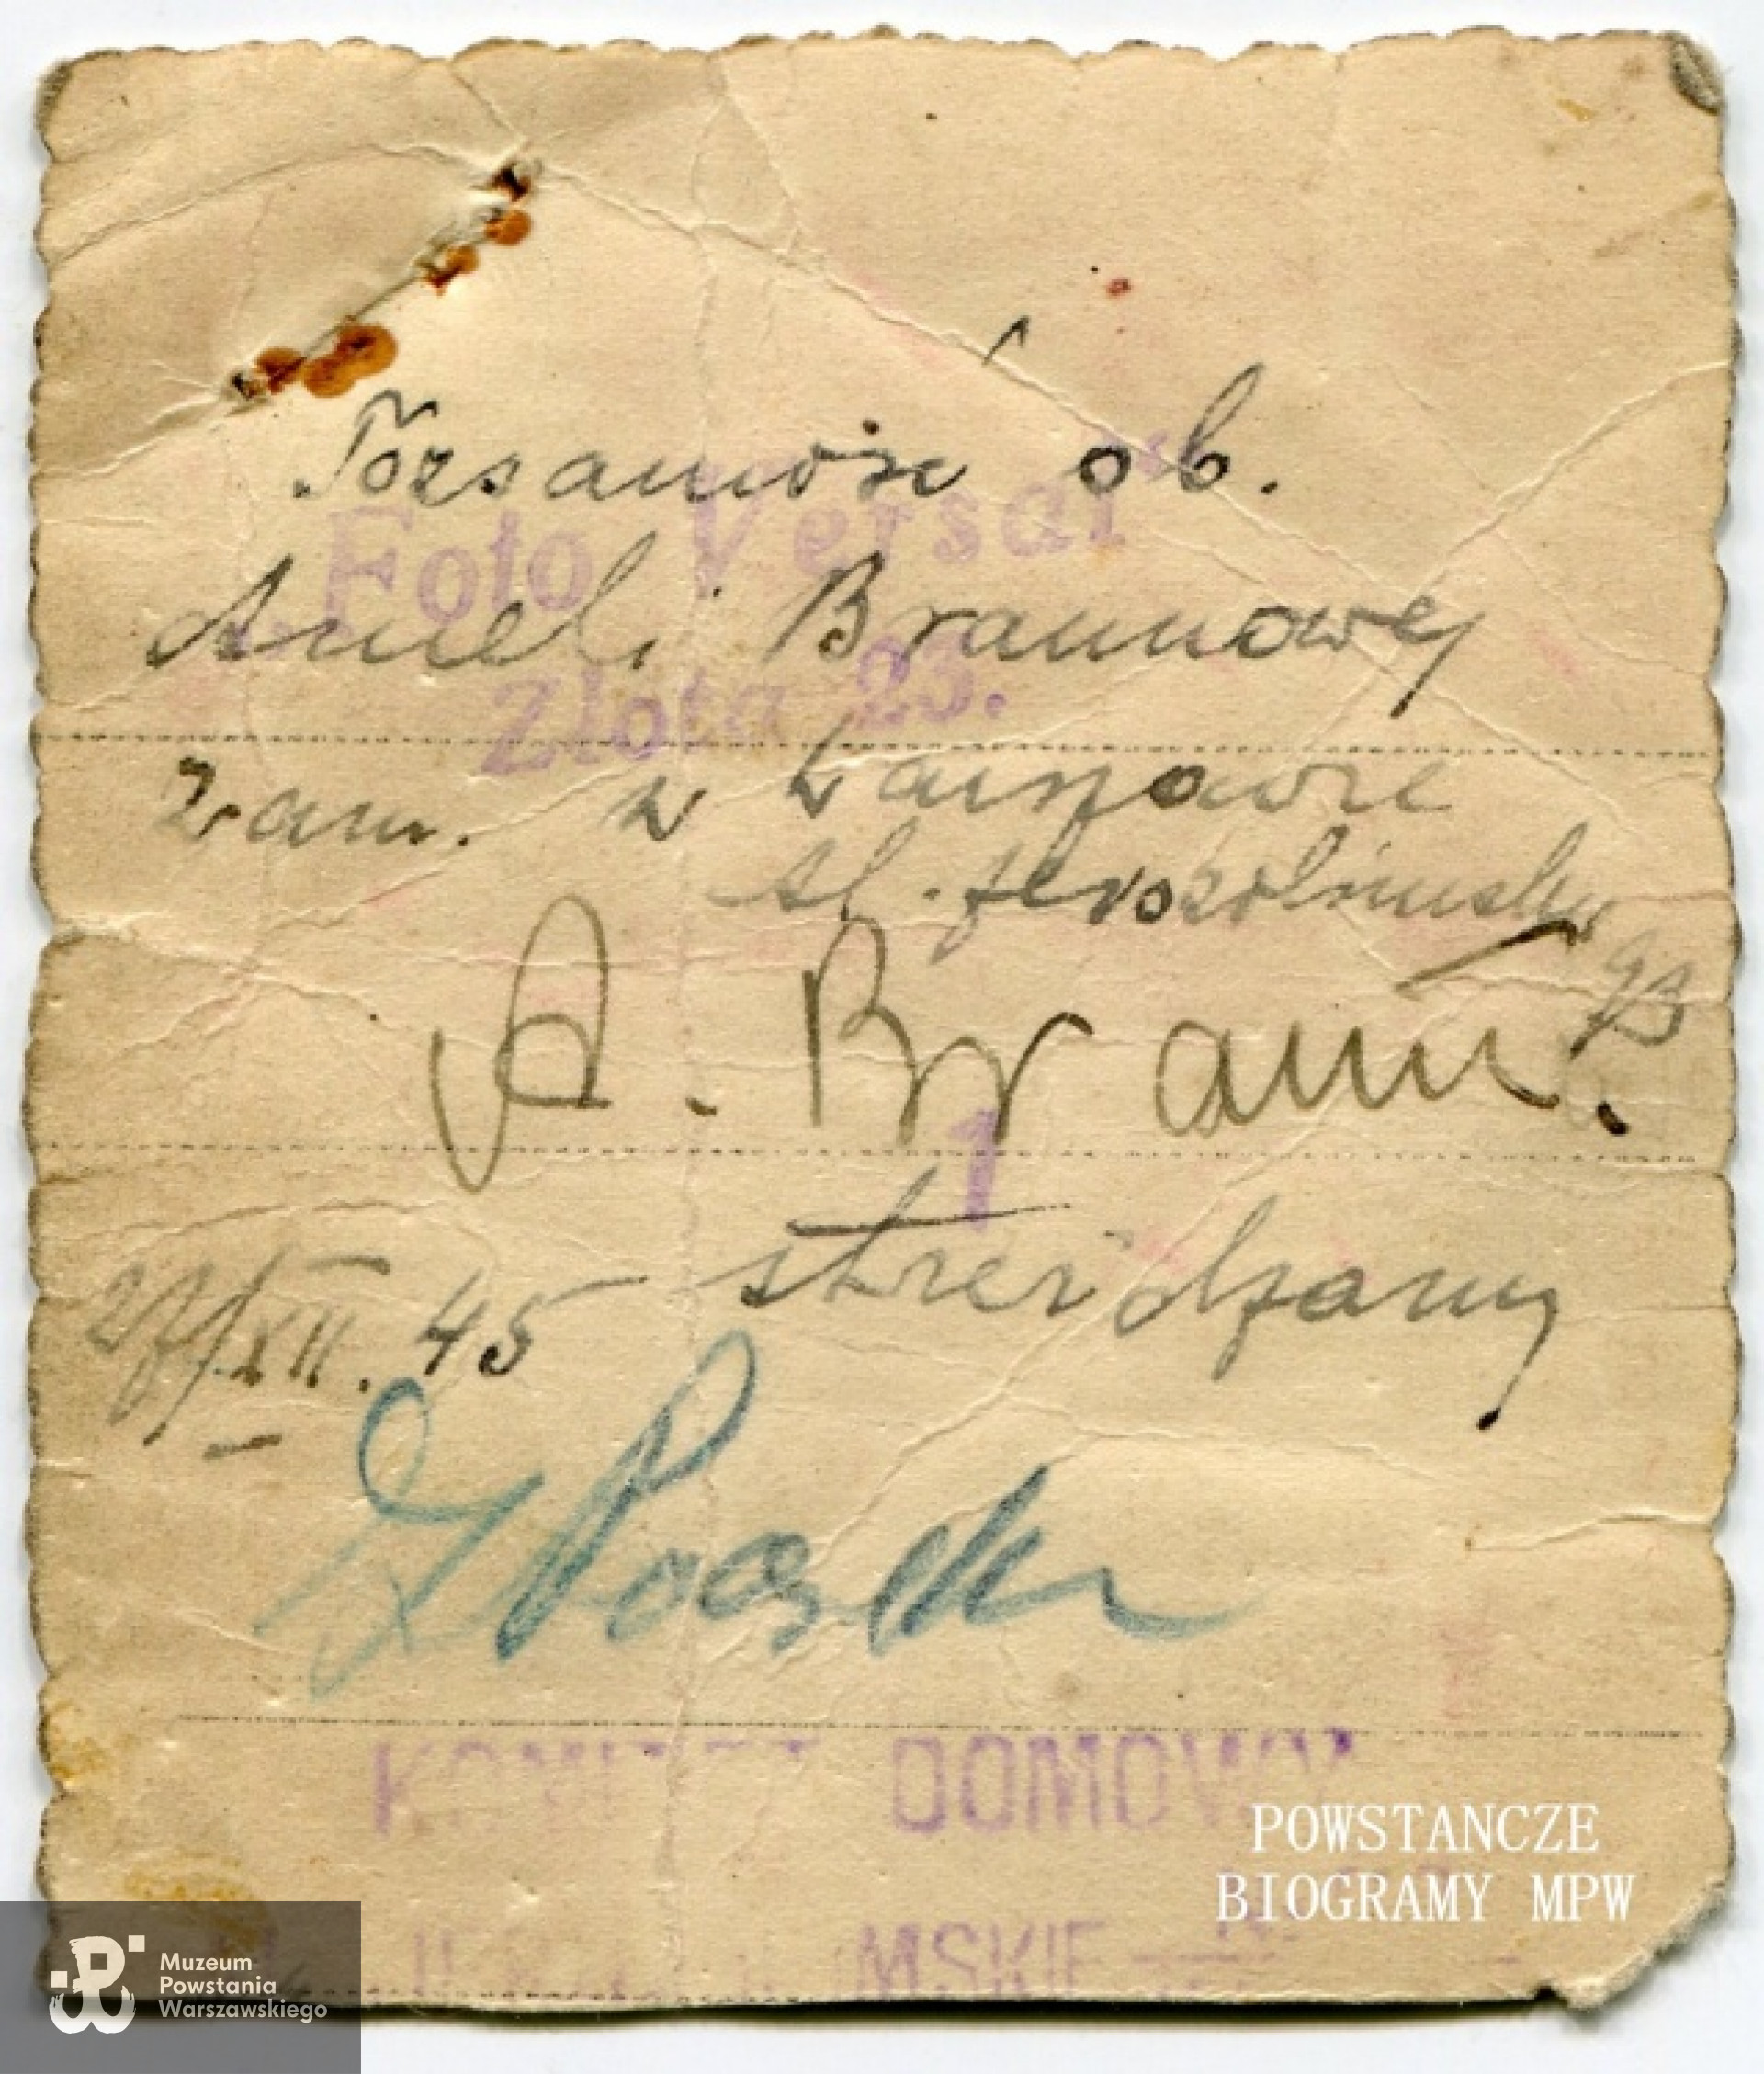 Tożsamość ob.
"Foto Versal"
Aneli Braunowej
Złota 23.
zam. w Warszawie
Al. Jerozolimskie
93
A. Braun.
1
stwierdzam
27/XII. 45
KOMITET DOMOWY
MSKIE
POWSTANCZE
BIOGRAMY MPW
Muzeum
Powstania
Warszawskiego